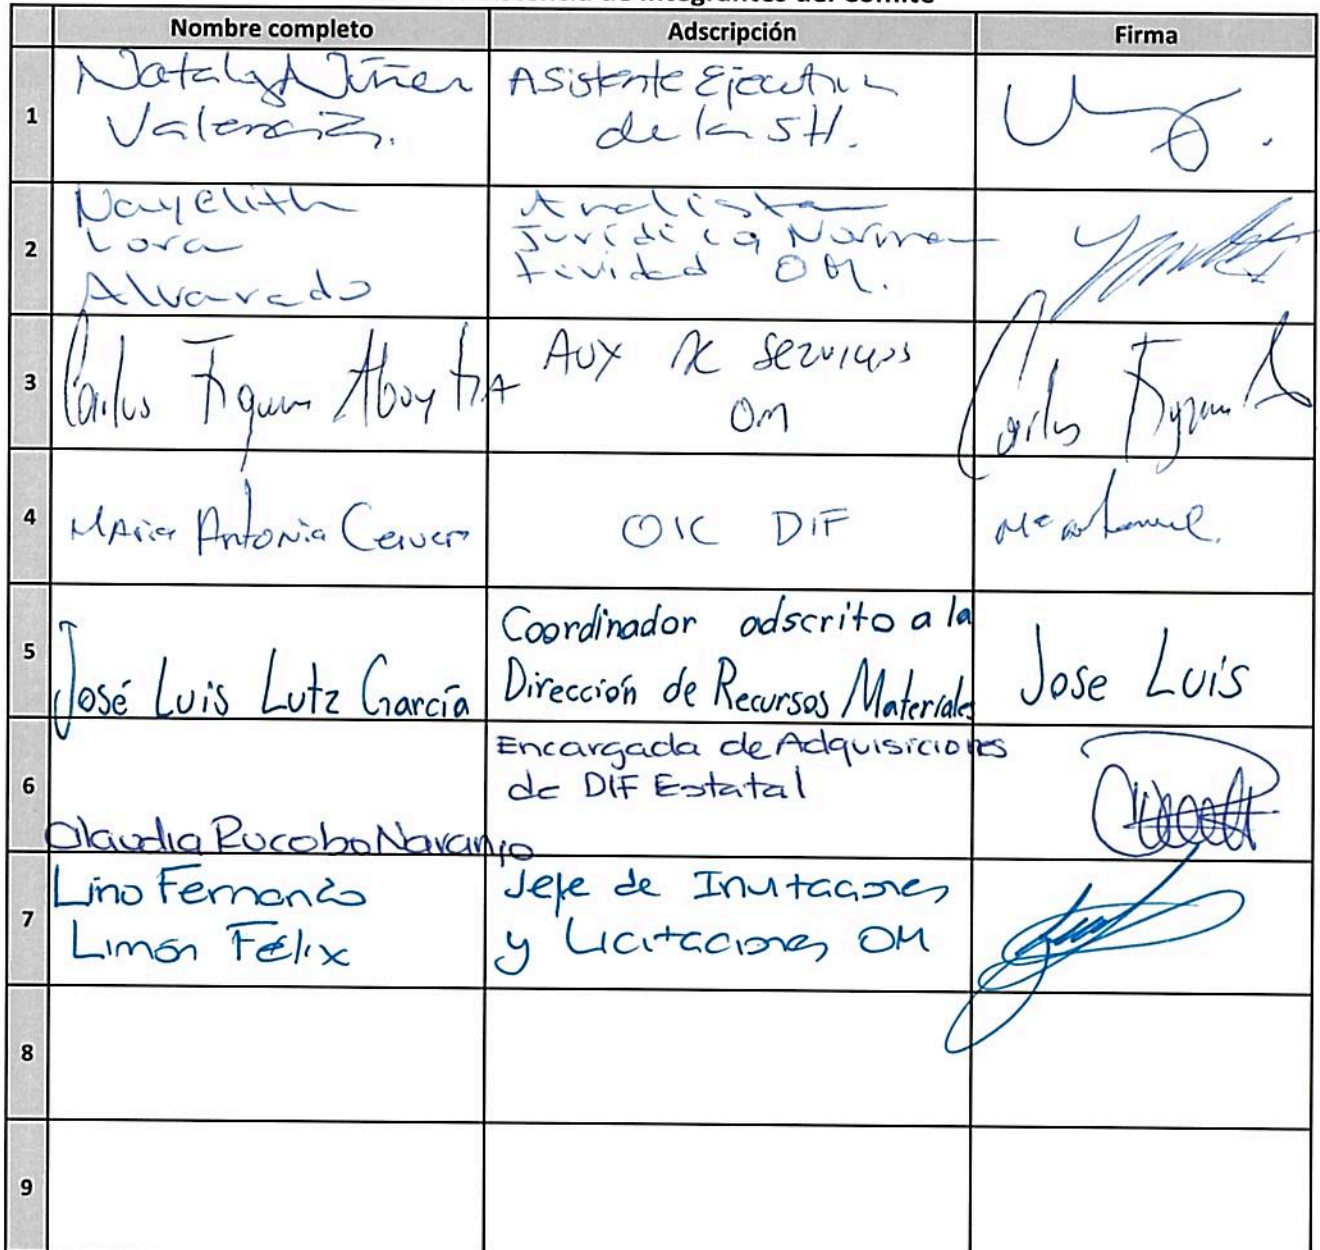 de Integrantes del Comité
Nombre completo Adscripción Firma
1
Nataly Núñez
Valencia.
Asistente Ejecutiva
de la SH.
2
Nayelith
Lora
Alvarado
Analista
Jurídica Norma
tividad OM.
3
Carlos Figueroa
Aux de Servicios
OM
Carlos
4
Maria Antonia
OIC DIF
5
José Luis Lutz García
Coordinador adscrito a la
Dirección de Recursos Materiales
Jose Luis
6
Claudia Rucobo Naranjo
Encargada de Adquisiciones
de DIF Estatal
7
Lino Fernando
Limón Félix
Jefe de Invitaciones
y Licitaciones OM
8
9